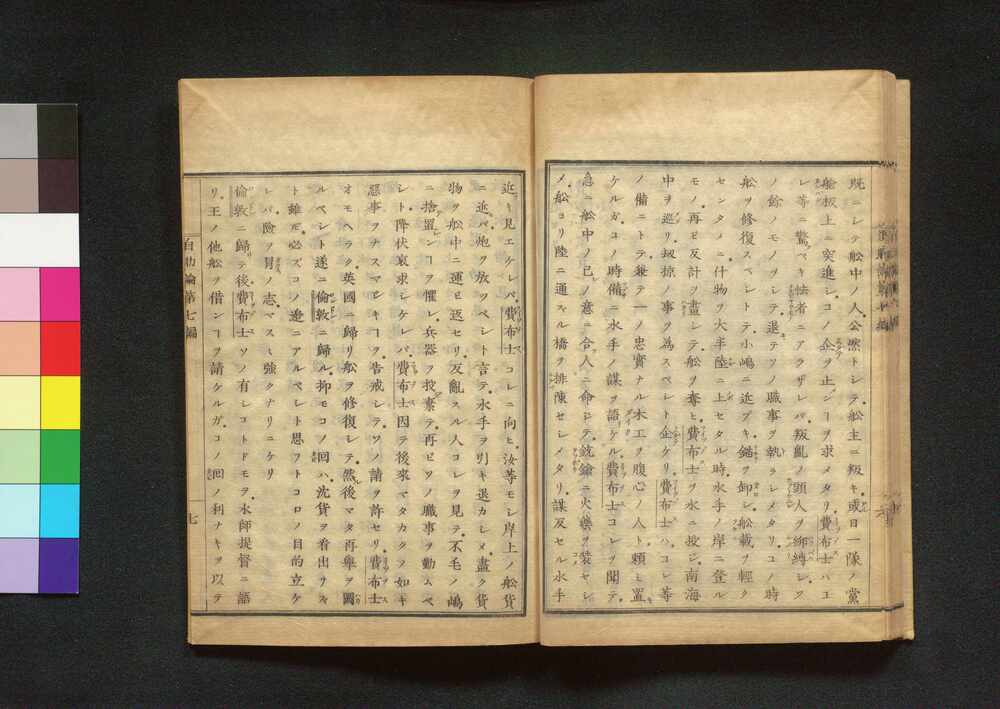 既ニシテ舩中ノ人公然トシテ舩主ニ叛キ或日一隊ノ黨
舩板上ニ突進シコノ企ヲ止ンヿヲ求メタリ費布士ハコ
レ等ニ驚ベキ怯者ニアラザレバ叛亂ノ頭人ヲ綁縛シソ
ノ餘ノモノヲシテ退テソノ職事ヲ執ラシメタリコノ時
舩ヲ修復スベシトテ小嶋ニ近ヅキ錨ヲ卸シ舩載ヲ輕ク
センタメニ什物ヲ大半陸ニ上セタル時水手ノ岸ニ登ル
モノ再ビ反計ヲ畫シテ舩ヲ奪ヒ費布士ヲ水ニ投ジ南海
中ヲ巡リ刼掠ノ事ヲ為スベシト企ケリ費布士ハコレ等
ノ備ニトテ兼テ一ノ忠實ナル木工ヲ腹心ノ人ト頼ミ置
ケルガコノ時備ニ水手ノ謀ヲ語ケル費布士コレヲ聞テ
急ニ舩中ノ己ノ意ニ合人ニ命ジテ銃鎗ニ火藥ヲ装ヤシ
メ舩ヨリ陸ニ通スル橋ヲ排陳セシメタリ謀反セル水手
近キ見エケレバ費布士コレニ向ヒ汝等モシ岸上ノ舩貨
ニ近バ炮ヲ放ツベシト言テ水手ヲ引キ退カシメ盡ク貨
物ヲ舩中ニ運ビ返セリ反亂スル人コレヲ見テ不毛ノ嶋
ニ捨置ンヿヲ懼レ兵器ヲ投棄テ再ビソノ職事ヲ勤ムベ
シト降伏哀求シケレバ費布士因テ後來マタカクノ如キ
惡事ヲナスマジキヿヲ告戒シテソノ請ヲ許セリ費布士
オモヘラク英國ニ歸リ舩ヲ修復シテ然後マタ再擧ヲ圖
ルベシト遂ニ倫敦ニ歸ル抑モコノ回ハ沈貨ヲ看出サネ
ト雖𪜈必ズコノ邊ニアルベシト思フトコロノ目的立ケ
レバ險ヲ冒ノ志マス〱強クナリニケリ
倫敦ニ歸テ後費布士ソノ有シコトドモヲ水師提督ニ語
リ王ノ他舩ヲ借ンヿヲ請ケルガコノ回ノ利ナキヲ以テ
自助論第七編
七